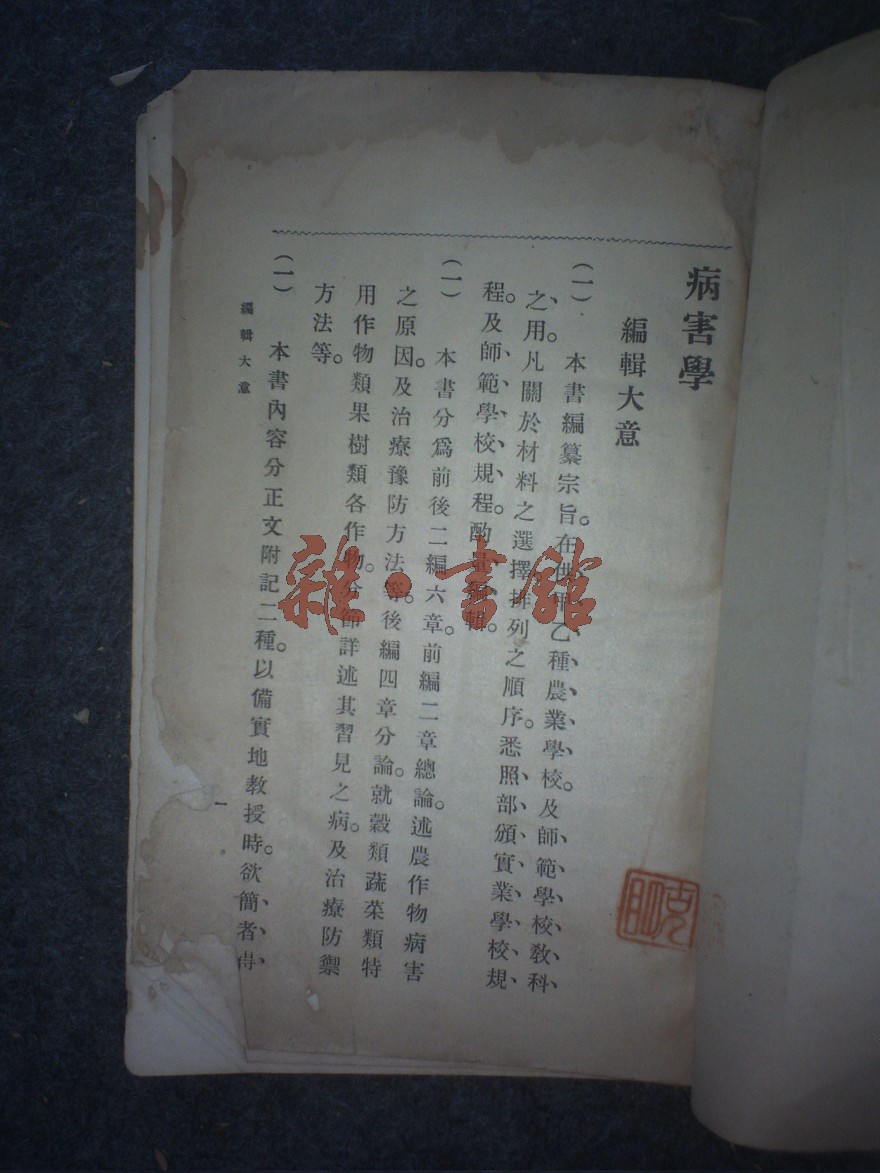 病害學
編輯大意
（一） 本書編纂宗旨。在供甲乙種農業學校。及師範學校敎科
之用。凡關於材料之選擇排列之順序。悉照部頒實業學校規
程。及師範學校規程。酌量編輯。
（一） 本書分爲前後二編六章。前編二章總論。述農作物病害
之原因。及治療豫防方法等。後編四章分論。就穀類蔬菜類特
用作物類果樹類各作物。分節詳述其習見之病。及治療防禦
方法等。
（一） 本書內容分正文附記二種。以備實地敎授時。欲簡者得
編輯大意
一
雜·書館